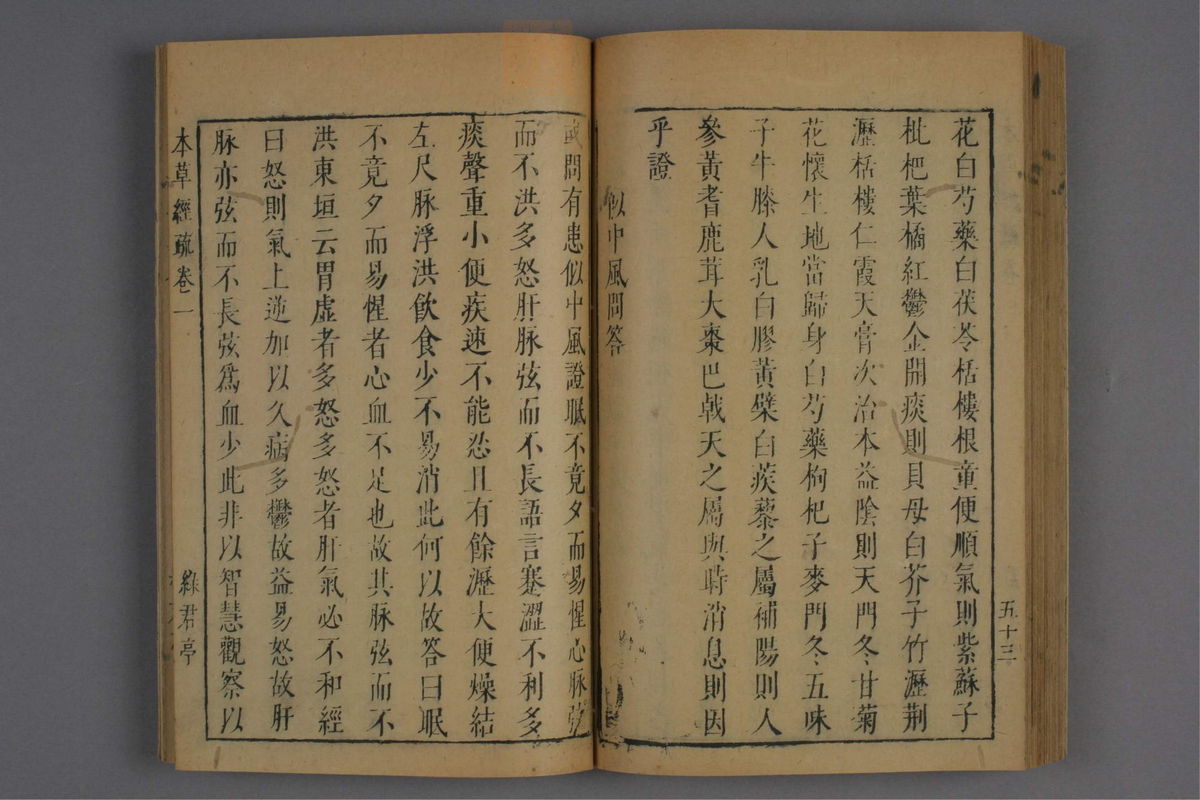 花白芍藥白茯苓栝樓根童便順氣則紫蘇子
枇杷葉橘紅鬱金開痰則貝母白芥子竹瀝荆
瀝栝樓仁霞天膏次治本益陰則天門冬甘菊
花懷生地當歸身白芍藥枸杞子麥門冬五味
子牛膝人乳白膠黃檗白蒺藜之屬補陽則人
參黃耆鹿茸大棗巴戟天之屬與時消息則因
乎證
似中風問答
五十三
或問有患似中風證眠不竟夕而易惺心脉弦
而不洪多怒肝脉弦而不長語言蹇澀不利多
痰聲重小便疾速不能忍且有餘瀝大便燥結
左尺脉浮洪飲食少不易消此何以故答曰眠
不竟夕而易惺者心血不足也故其脉弦而不
洪東垣云胃虛者多怒多怒者肝氣必不和經
曰怒則氣上逆加以久病多鬱故益易怒故肝
脉亦弦而不長弦爲血少此非以智慧觀察以
本草經疏卷一
綠君亭